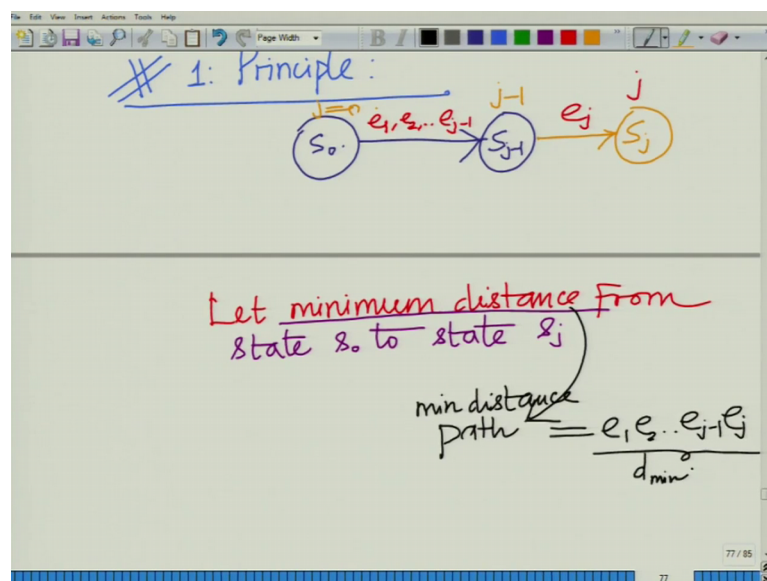 File Edit View Insert Actions Tools Help
Page Width
B I
# 1: Principle:
j=0 e1, e2, .. ej-1 j-1 ej j
S0. Sj-1 Sj
Let minimum distance From
state s0 to state sj
min distance
path = e1 e2 .. ej-1 ej
dmin.
77 / 85
77